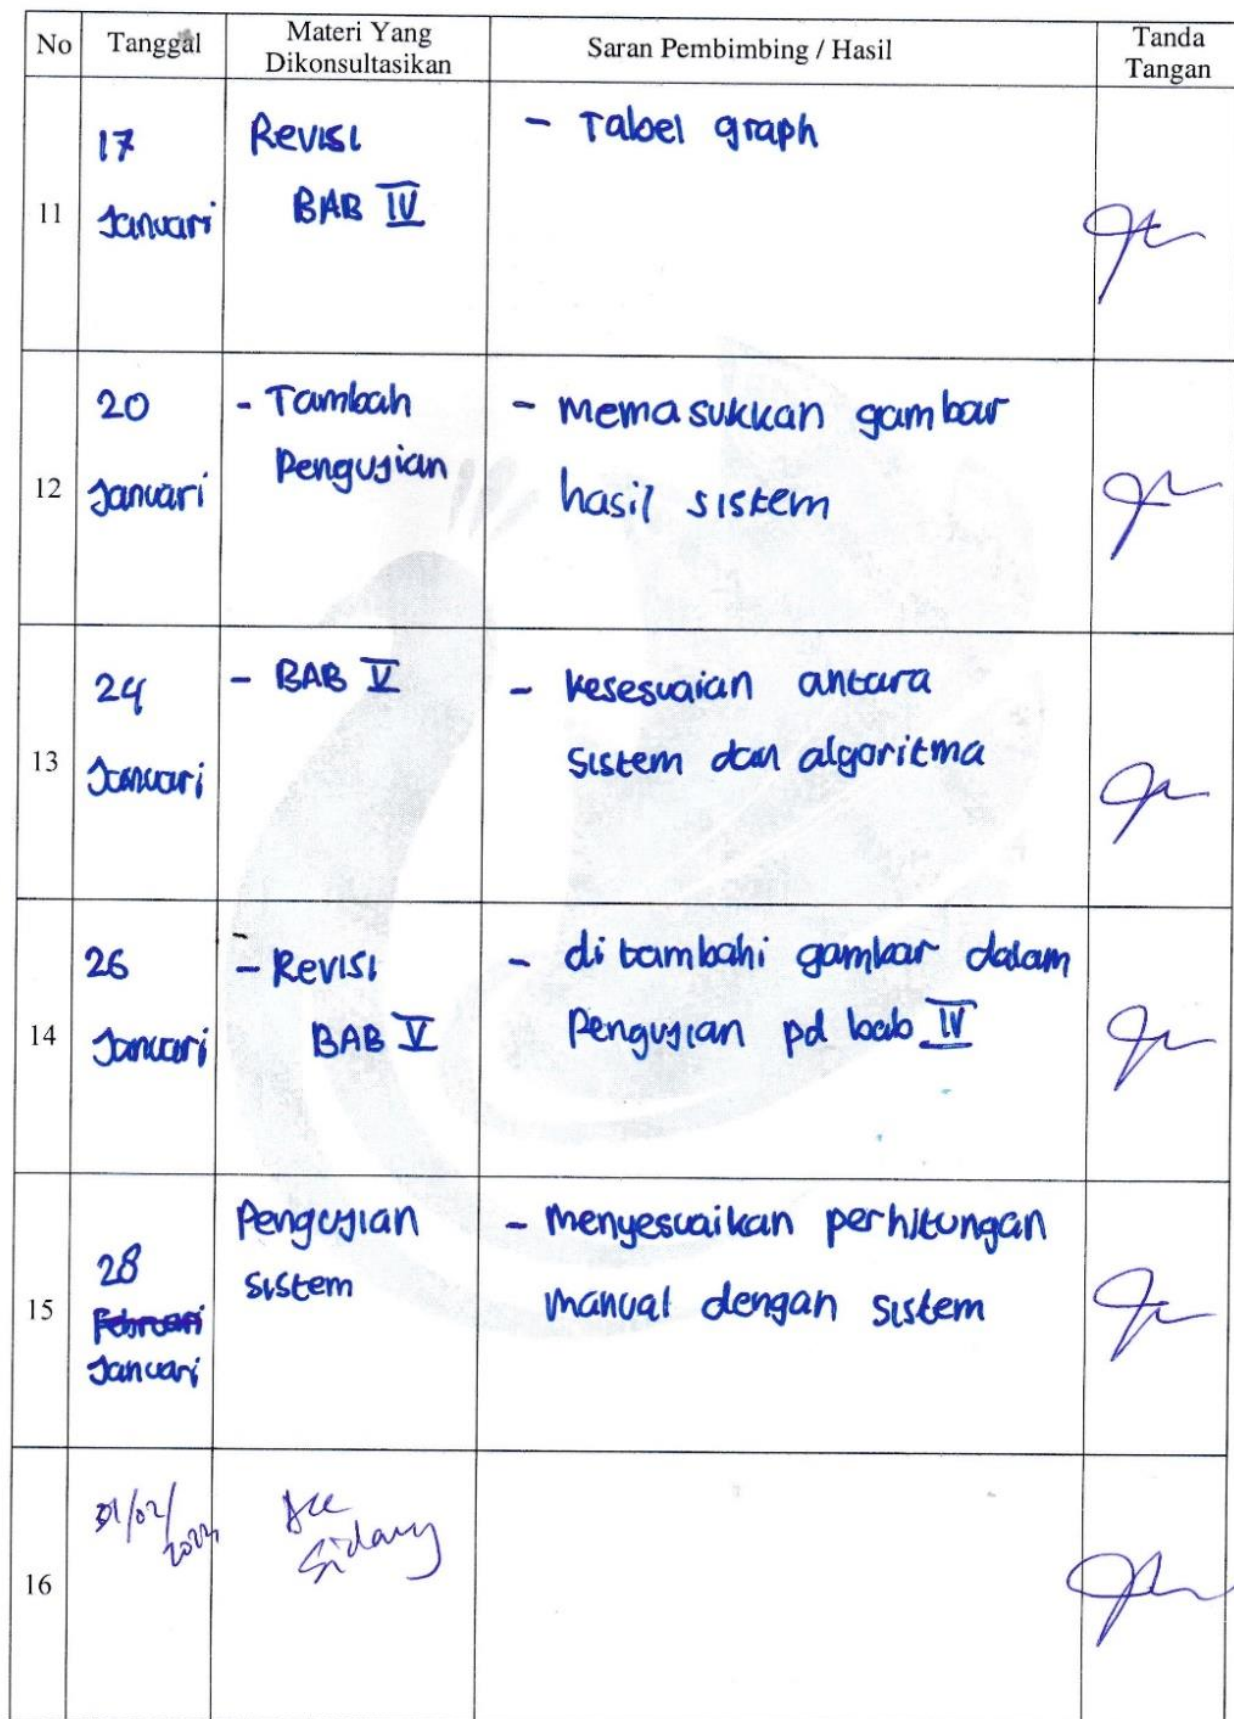 No Tanggal Materi Yang Dikonsultasikan Saran Pembimbing / Hasil Tanda Tangan
11
17
Januari
Revisi
BAB IV
- Tabel graph
12
20
Januari
- Tambah
Pengujian
- memasukkan gambar
hasil sistem
13
24
Januari
- BAB V
- kesesuaian antara
sistem dan algoritma
14
26
Januari
- Revisi
BAB V
- di tambahi gambar dalam
Pengujian pd bab IV
15
28
Februari
Januari
Pengujian
sistem
- Menyesuaikan perhitungan
manual dengan sistem
16
01/02/
Acc
Sidang